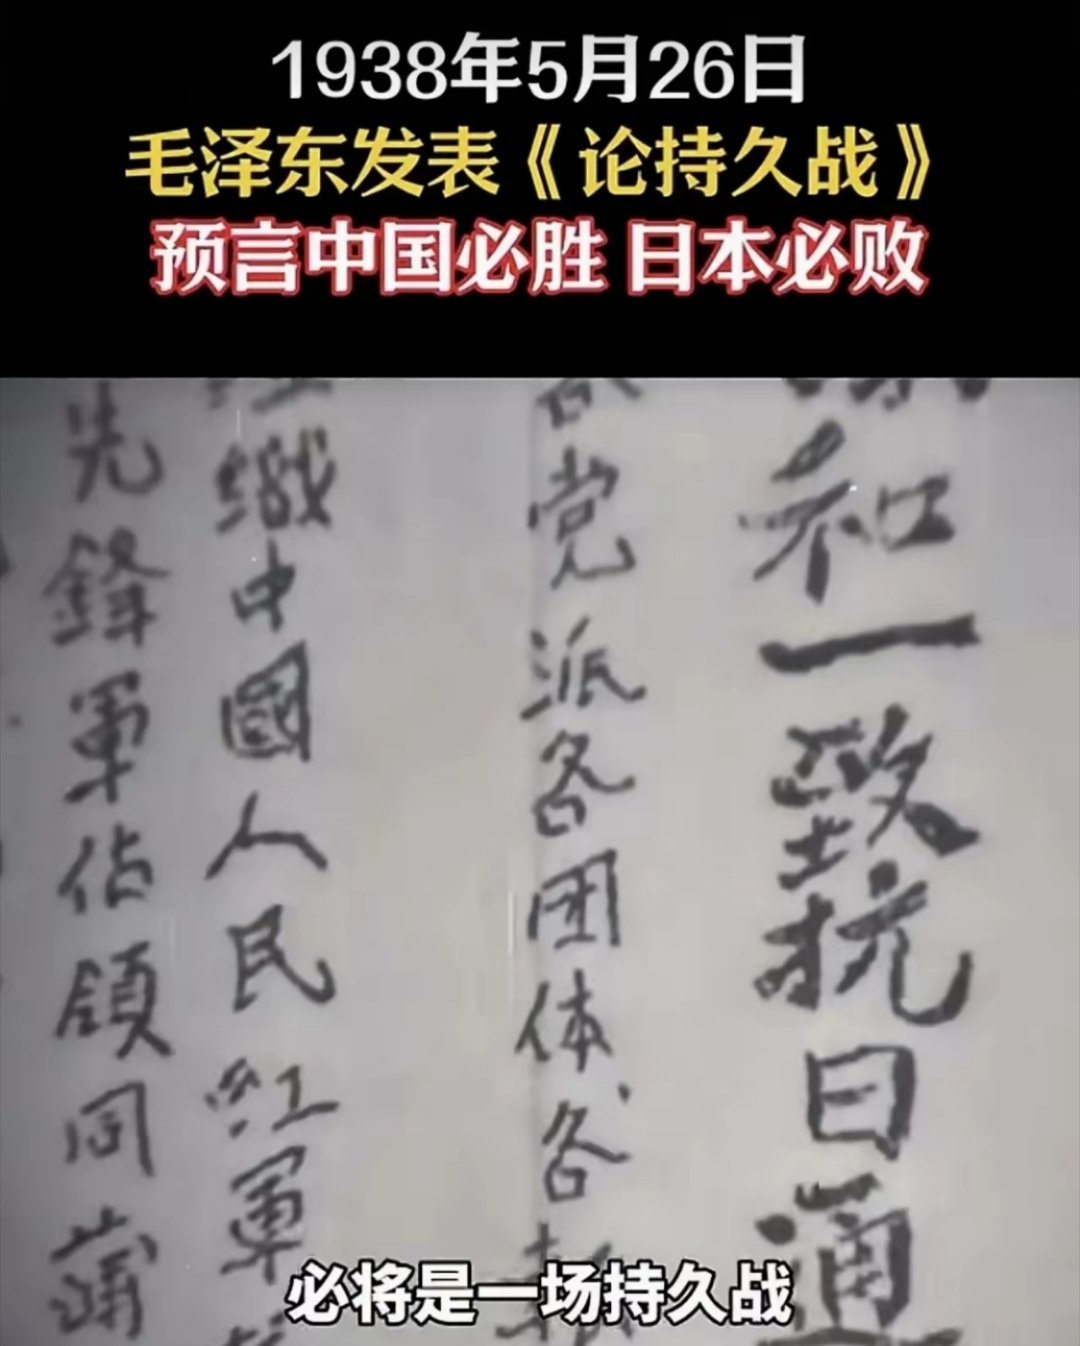 1938年5月26日
毛泽东发表《论持久战》
预言中国必胜 日本必败
和一致抗日通
党派各团体各
織中國人民紅軍
先鋒軍佔領同蒲
必将是一场持久战